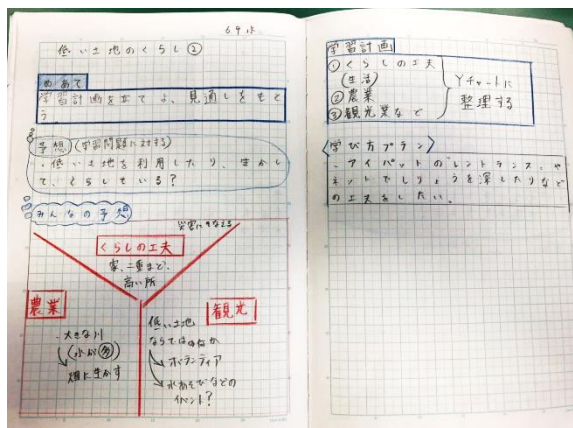 6.9 水
低い土地のくらし②
めあて
学習計画を立てよ、見通しをもと
う。
予想(学習問題に対する)
・低い土地を利用したり、生かし
て、くらしている?
みんなの予想
くらしの工夫
家、二重まど、
高い所
農業
・大きな川
(水が多)
→畑に生かす
観光
低い土地
ならではの
→ボランティア
→水あそびなどの
イベント?
学習計画
①くらしの工夫
(生活)
②農業
③観光業など
Yチャートに
整理する
<学び方プラン>
・アイパットの
ネットでしりょうを深したりなど
の工夫をしたい。